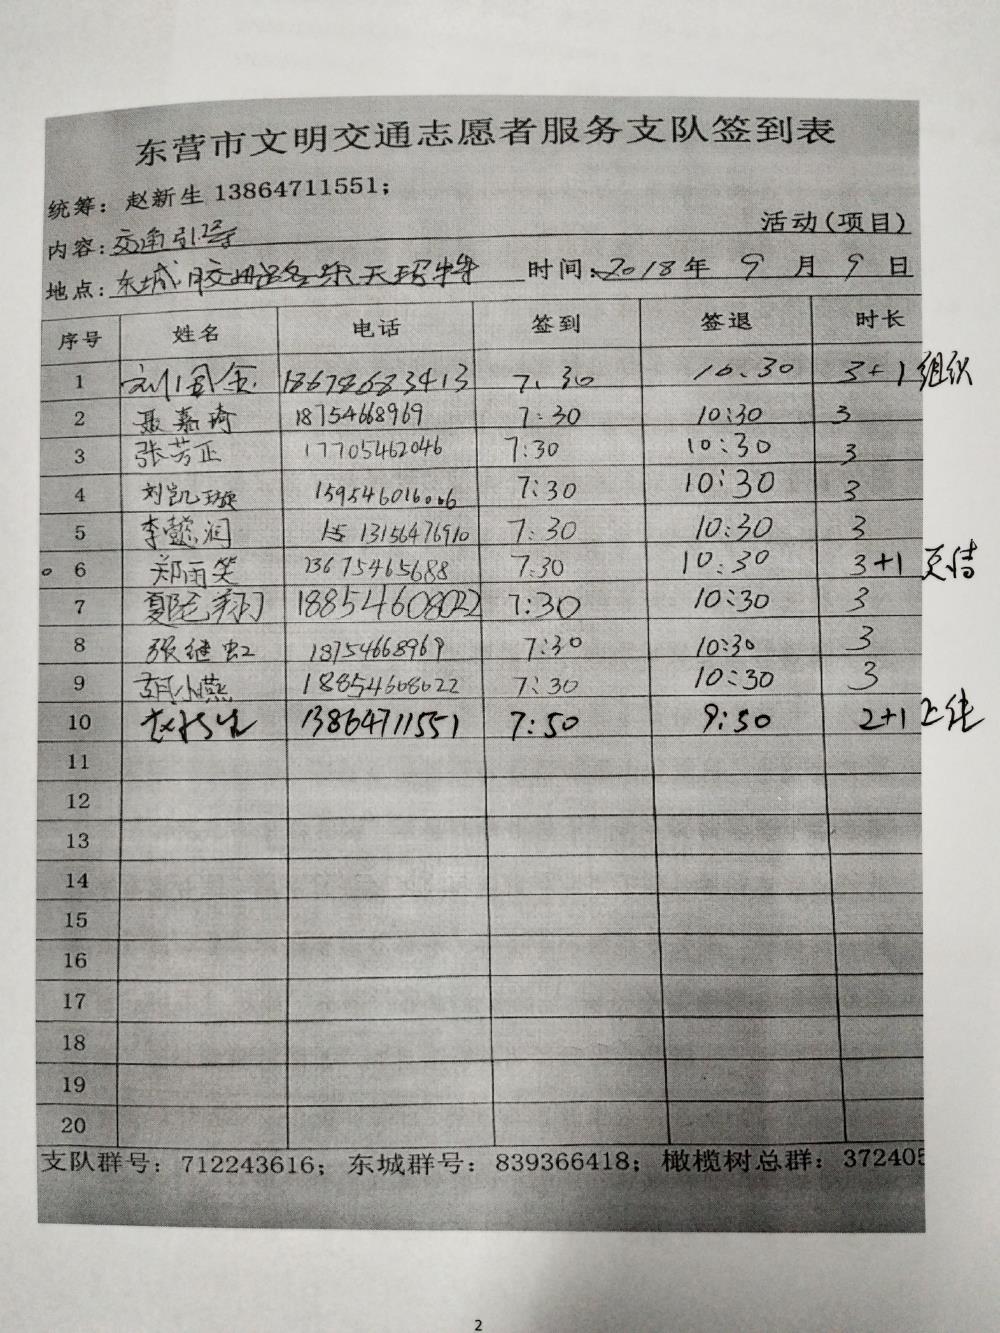 东营市文明交通志愿者服务支队签到表
统筹：赵新生 13864711551；
内容：交通引导 活动(项目)
地点：东城胶州路乐天玛特 时间：2018年 9 月 9 日
序号 姓名 电话 签到 签退 时长
1 刘国金 18678683413 7:30 10:30 3+1 组织
2 聂嘉琦 18754668969 7:30 10:30 3
3 张芳正 17705462046 7:30 10:30 3
4 刘凯璇 15954601606 7:30 10:30 3
5 李懿润 13156476910 7:30 10:30 3
6 郑雨笑 13675465688 7:30 10:30 3+1
7 18854608022 7:30 10:30 3
8 张继虹 18754668969 7:30 10:30 3
9 胡小燕 18854608022 7:30 10:30 3
10 赵新生 13864711551 7:50 9:50 2+1 上传
11
12
13
14
15
16
17
18
19
20
支队群号：712243616； 东城群号：839366418； 橄榄树总群：372405
2